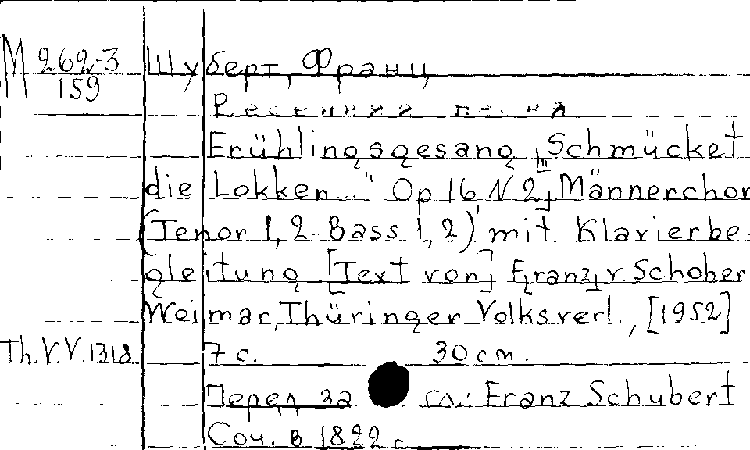 М 262-3
159
Шуберт, Франц
Весенняя песня
Frühlingsgesang „Schmücket
die Lokken..." Op 16 N 2, Männerchor
(Tenor 1, 2 Bass 1, 2) mit Klavierbe-
gleitung [Text von] Franz v. Schober
Weimar, Thüringer Volksverl., [1952]
Th.V.V. 1318 7 с. 30 см.
Перед за сл.: Franz Schubert
Соч. в 1822 г.